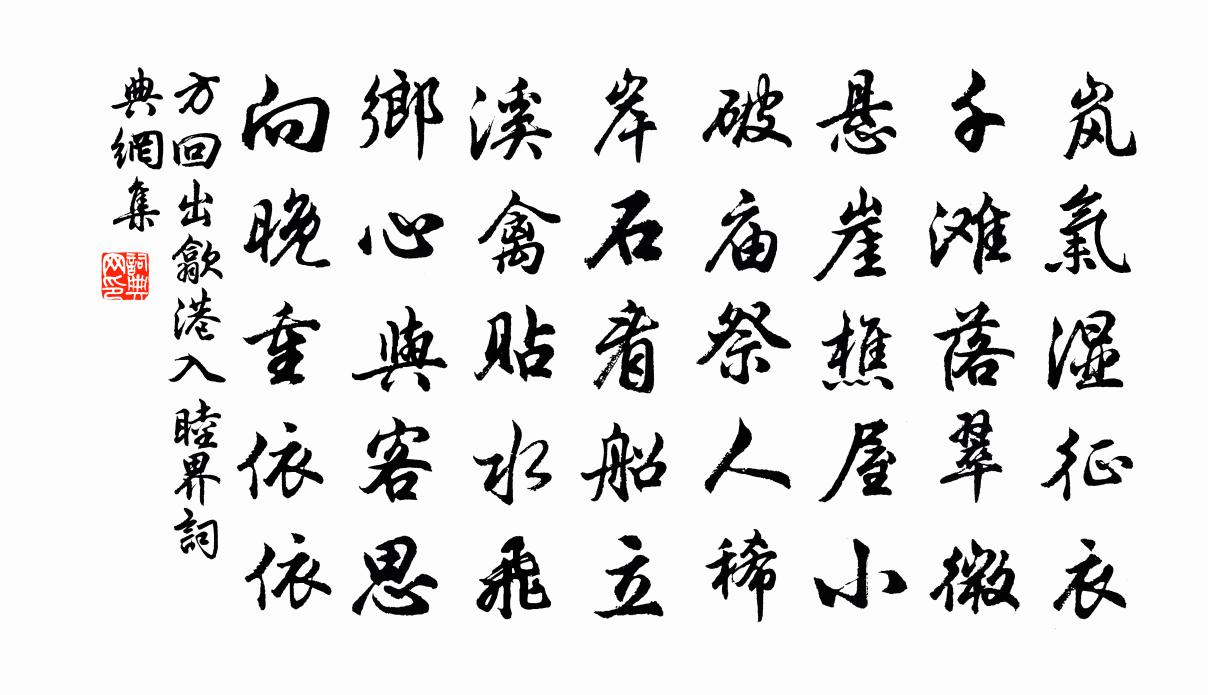 岚氣湿征衣
千滩落翠微
悬崖樵屋小
破庙祭人稀
岸石看船立
溪禽貼水飛
鄉心與客思
向晚重依依
方回出歙港入睦界詞
典網集
詞典网印